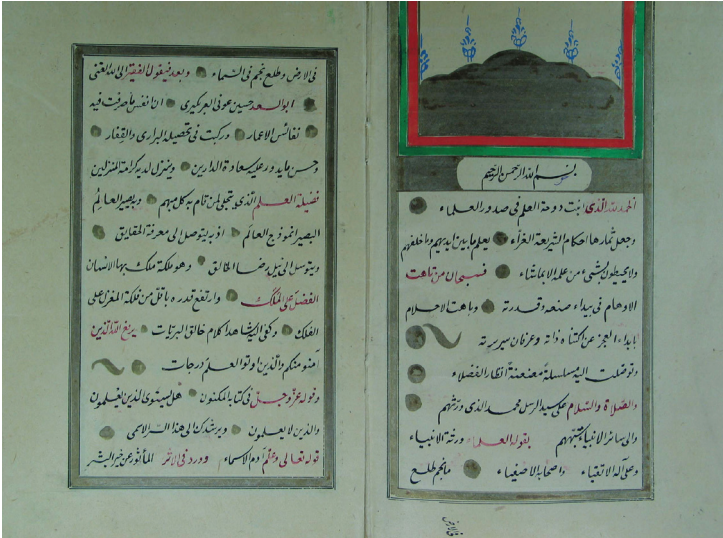 بسم الله الرحمن الرحيم
الحمد لله الذى انبت دوحة العلم فى صدور العلماء
وجعل ثمارها احكام الشريعة الغراء يعلم ما بين ايديهم وما خلفهم
ولا يحيطون بشىء من علمه الا بما شاء فسبحان من تاهت
الاوهام فى بيداء صنعه وقدرته وباهت الاحلام
بابداء العجز عن اكتناه ذاته وعرفان سريرته
اليه سلسلة معنعنة انظار الفضلاء
والصلاة والسلام على سيد الرسل محمد الذى
والى سائر الانبياء بقوله العلماء ورثة الانبياء
وعلى آله الاتقياء واصحابه الاصفياء ما نجم طلع
فى الارض
فى الارض وطلع نجم فى السماء وبعد فيقول الفقير الى الله الغنى
ابو السعد حسين عونى العربكيرى ان انفس ما صرفت فيه
نفائس الاعمار وركبت فى تحصيله البرارى والقفار
وحسن ما يدور عليه سعادة الدارين وينزل لديه كرامة المنزلين
فضيلة العلم الذى يتجلى لمن قام به كل مبهم ويصير العالم
البصير انموذج العالم اذ به يتوصل الى معرفة الحقايق
ويتوسل الى نيل رضا الخالق وهو ملكة ملك بها الانسان
الفضل على الملك وارتفع قدره باقل من فلكة المغزل على
الفلك وكفى اليه شاهدا كلام خالق البريات يرفع الله الذين
آمنوا منكم والذين اوتوا العلم درجات
وقوله عز وجل فى كتابه المكنون هل يستوى الذين يعلمون
والذين لا يعلمون ويرشدك الى هذا السر الاسمى
قوله تعالى وعلم آدم الاسماء وورد فى الاثر المأثور عن خير البشر